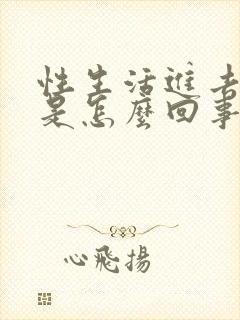 性生活進去
是怎麼回事
心飛揚